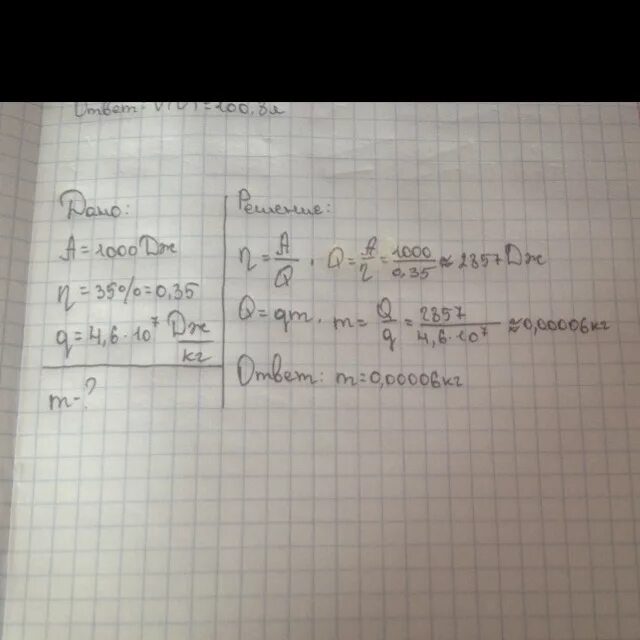 Ответ:
Дано:
A = 1000 Дж
η = 35% = 0,35
q = 4,6 · 10⁷ Дж/кг
m - ?
Решение:
η = A/Q, Q = A/η = 1000/0,35 ≈ 2857 Дж
Q = qm, m = Q/q = 2857/4,6·10⁷ ≈ 0,00006 кг
Ответ: m = 0,00006 кг